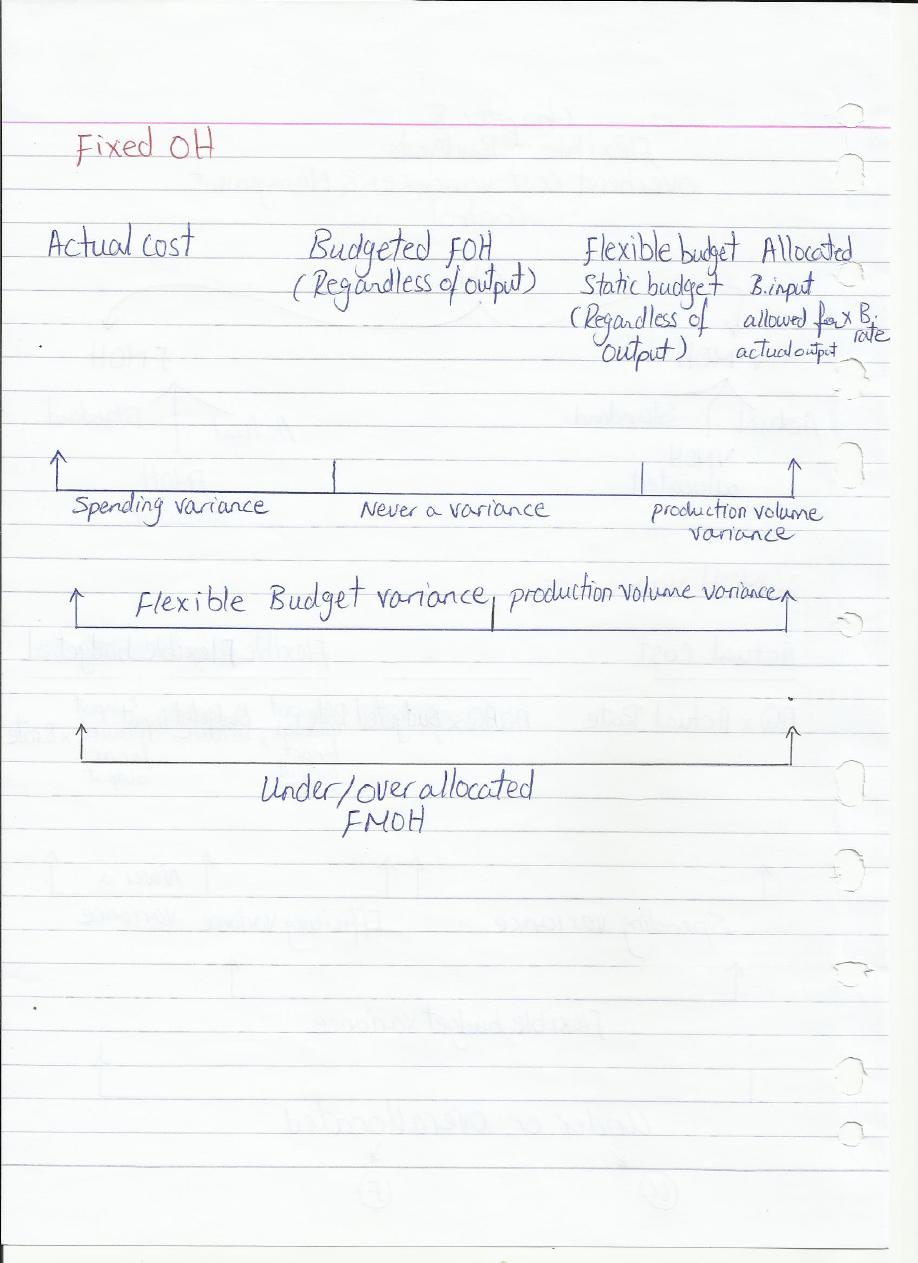 Fixed OH
Actual cost Budgeted FOH Flexible budget Allocated
(Regardless of output) Static budget B.input
(Regardless of allowed for x B.
rate
output) actual output
Spending variance Never a variance production volume
variance
Flexible Budget variance production volume variance
Under/over allocated
FMOH